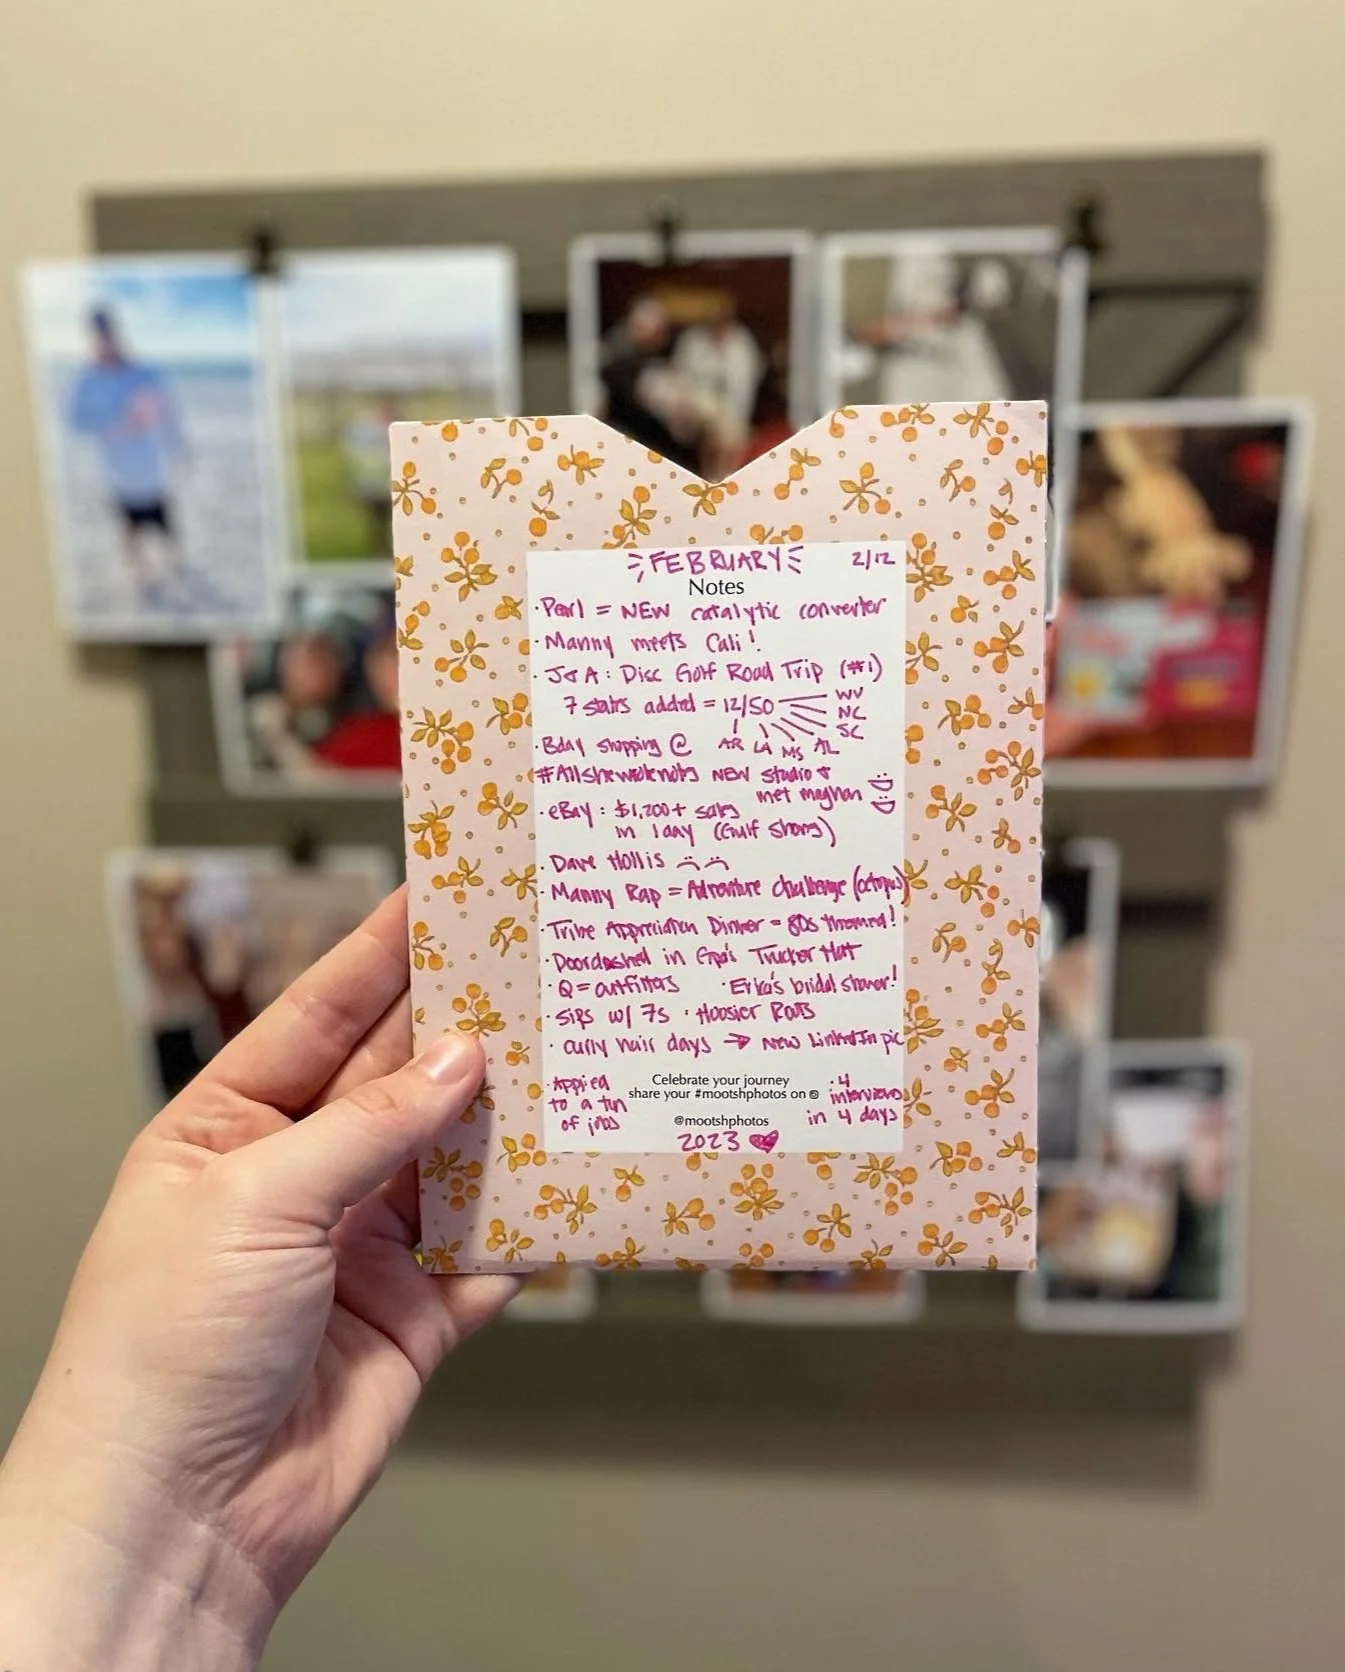 FEBRUARY 2/12
Notes
· Pearl = NEW catalytic converter
· Manny meets Cali!
· J & A: Disc Golf Road Trip (#1)
7 states added = 12/50 WV
NC
SC
AR LA MS AL
· Bday shopping @
#Allsheweknobs NEW studio +
met meghan
· eBay: $1,200+ sales
in 1 day (Gulf Shores)
· Dave Hollis
· Manny Rap = Adventure challenge (octopus)
· Tribe Appreciation Dinner = 80s themed!
· Doordashed in Gpa's Trucker Hat
· Q = outfitters · Erika's bridal shower!
· Sips w/ 7s · Hoosier Roots
· curly hair days → New LinkedIn pic
· Applied
to a tun
of jobs
Celebrate your journey
share your #mootshphotos on
@mootshphotos
· 4
interviews
in 4 days
2023